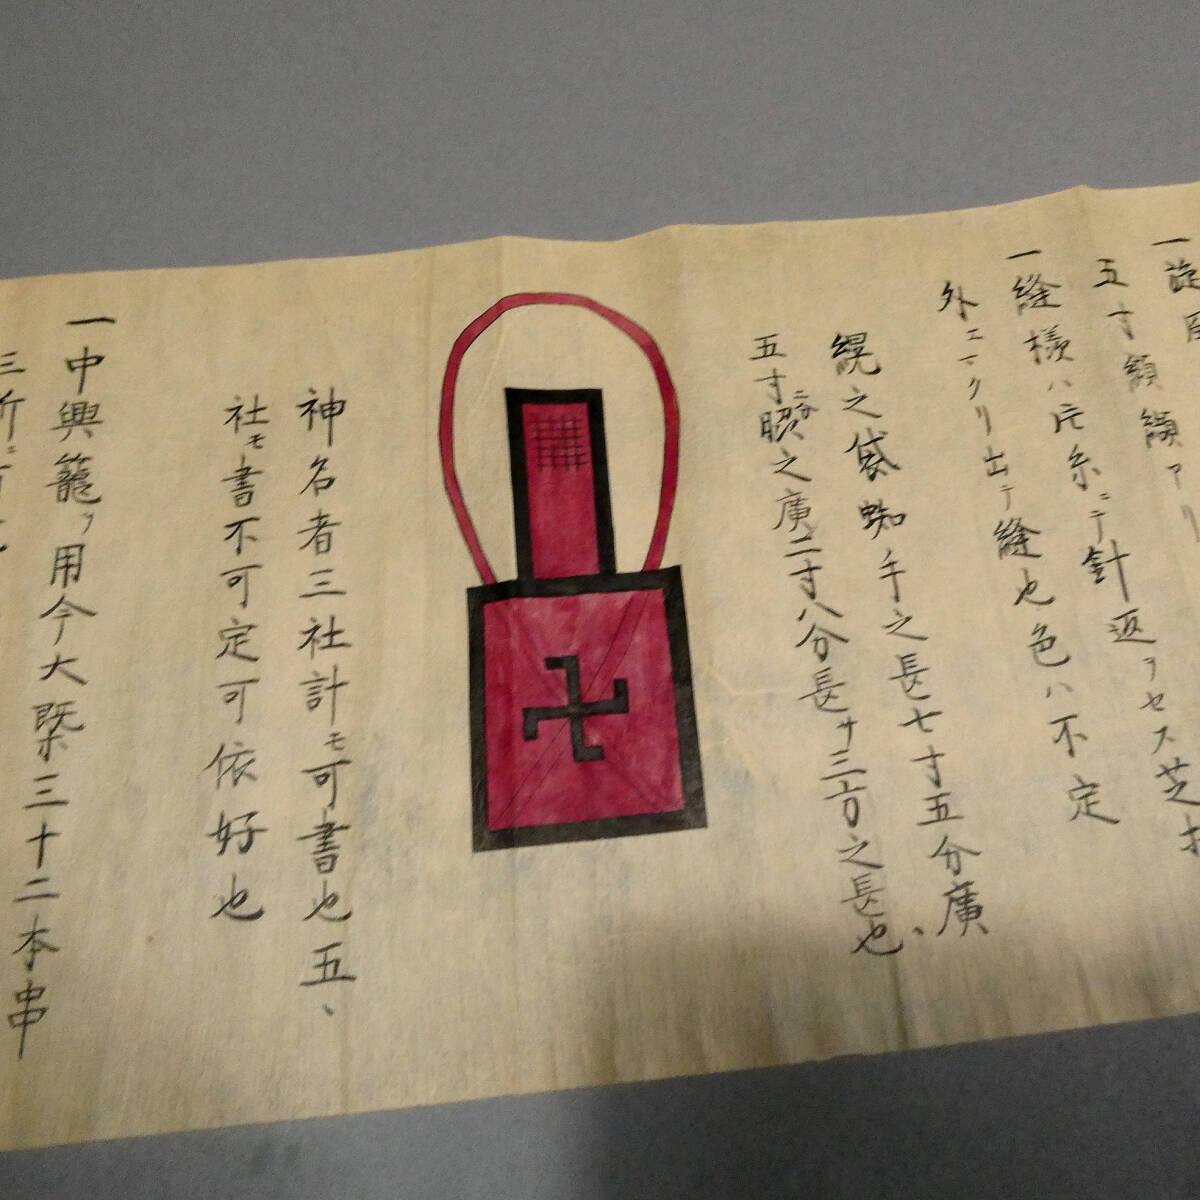 一旋風
五寸纐纈アリ
一縫様ハ片糸ニテ針返ヲセス芝打
外ニマクリ出テ縫也色ハ不定
幌之袋蜘手之長七寸五分廣
五寸二分之廣二寸八分長サ三方之長也
神名者三社計モ可書也五、
社モ書不可定可依好也
一中興籠ヲ用今大概三十二本串
三所ニ